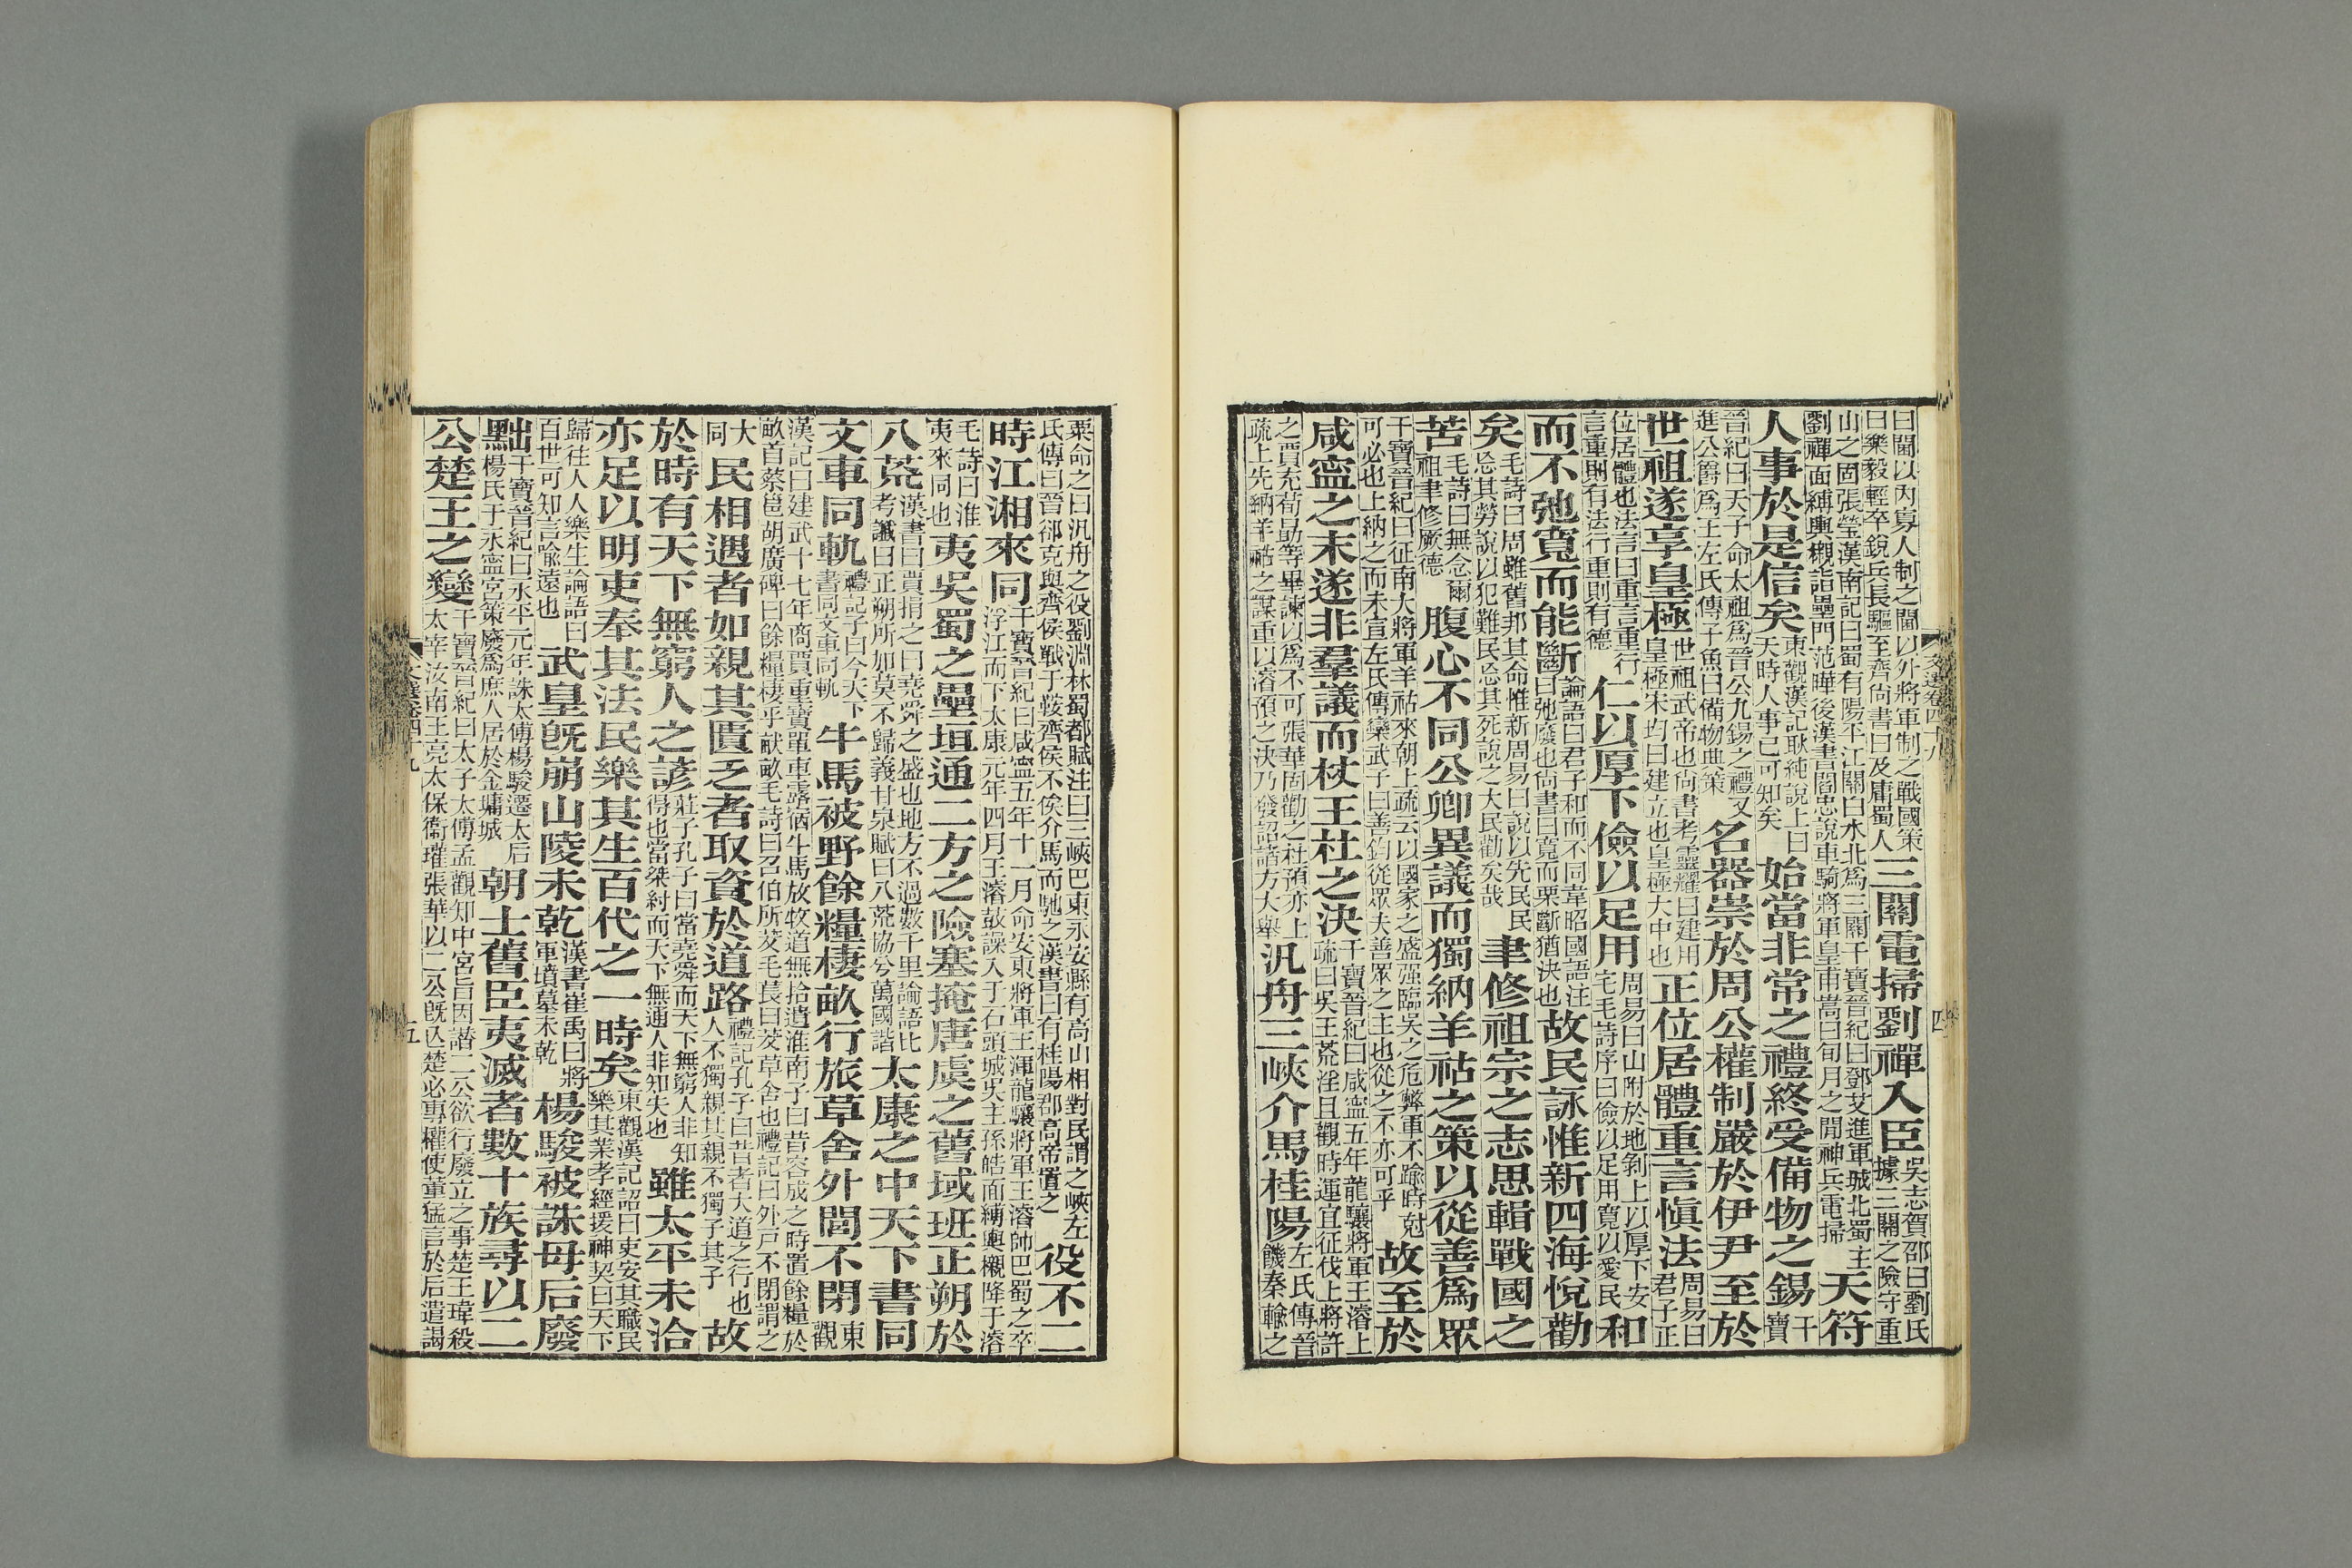 曰閫以內寡人制之閫以外將軍制之戰國策
曰樂毅輕卒銳兵長驅至齊尚書曰及庸蜀人
三關電掃劉禪入臣
吳志賀邵曰劉氏
據三關之險守重
山之固張瑩漢南記曰蜀有陽平江關白水北為三關干寶晉紀曰鄧艾進軍城北蜀主
劉禪面縛輿櫬詣壘門范曄後漢書閻忠說車騎將軍皇甫嵩曰旬月之閒神兵電掃
天符
人事於是信矣
東觀漢記耿純說上曰
天時人事已可知矣
始當非常之禮終受備物之錫
干
寶
晉紀曰天子命太祖為晉公九錫之禮又
進公爵為王左氏傳子魚曰備物典策
名器崇於周公權制嚴於伊尹至於
世祖遂享皇極
世祖武帝也尚書考靈耀曰建用
皇極宋均曰建立也皇極大中也
正位居體重言慎法
周易曰
君子正
位居體也法言曰重言重行
言重則有法行重則有德
仁以厚下儉以足用
周易曰山附於地剝上以厚下安
宅毛詩序曰儉以足用寬以愛民
和
而不弛寬而能斷
論語曰君子和而不同韋昭國語注
曰弛廢也尚書曰寬而栗斷猶決也
故民詠惟新四海悅勸
矣
毛詩曰周雖舊邦其命惟新周易曰說以先民民
忘其勞說以犯難民忘其死說之大民勸矣哉
聿修祖宗之志思輯戰國之
苦
毛詩曰無念爾
祖聿修厥德
腹心不同公卿異議而獨納羊祜之策以從善為眾
干寶晉紀曰征南大將軍羊祜來朝上疏云以國家之盛强臨吳之危弊軍不踰時尅
可必也上納之而未宣左氏傳欒武子曰善鈞從眾夫善眾之主也從之不亦可乎
故至於
咸寧之末遂非羣議而杖王杜之決
干寶晉紀曰咸寧五年龍驤將軍王濬上
疏曰吳王荒淫且觀時運宜征伐上將許
之賈充荀勗等畢諫以為不可張華固勸之杜預亦上
疏上先納羊祜之謀重以濬預之決乃發詔諸方大舉
汎舟三峽介馬桂陽
左氏傳晉
饑秦輸之
文選卷四十八
四
粟命之曰汎舟之役劉淵林蜀都賦注曰三峽巴東永安縣有高山相對民謂之峽左
氏傳曰晉郤克與齊侯戰于鞍齊侯不俟介馬而馳之漢書曰有桂陽郡高帝置之
役不二
時江湘來同
干寶晉紀曰咸寧五年十一月命安東將軍王渾龍驤將軍王濬帥巴蜀之卒
浮江而下太康元年四月王濬鼓譟入于石頭城吳主孫皓面縛輿櫬降于濬
毛詩曰淮
夷來同也
夷吳蜀之壘垣通二方之險塞掩唐虞之舊域班正朔於
八荒
漢書曰賈捐之曰堯舜之盛也地方不過數千里論語比
考讖曰正朔所加莫不歸義甘泉賦曰八荒協兮萬國諧
太康之中天下書同
文車同軌
禮記子曰今天下
書同文車同軌
牛馬被野餘糧棲畝行旅草舍外閭不閉
東
觀
漢記曰建武十七年商賈重寶單車露宿牛馬放牧道無拾遺淮南子曰昔容成之時置餘糧於
畝首蔡邕胡廣碑曰餘糧棲乎畎畝毛詩曰召伯所茇毛萇曰茇草舍也禮記曰外戶不閉謂之
大
同
民相遇者如親其匱乏者取資於道路
禮記孔子曰昔者大道之行也
人不獨親其親不獨子其子
故
於時有天下無窮人之諺
莊子孔子曰當堯舜而天下無窮人非知
得也當桀紂而天下無通人非知失也
雖太平未洽
亦足以明吏奉其法民樂其生百代之一時矣
東觀漢記詔曰吏安其職民
樂其業孝經援神契曰天下
歸往人人樂生論語曰
百世可知言喻遠也
武皇旣崩山陵未乾
漢書崔禹曰將
軍墳墓未乾
楊駿被誅母后廢
黜
干寶晉紀曰永平元年誅太傅楊駿遷太后
楊氏于永寧宮策廢為庶人居於金墉城
朝士舊臣夷滅者數十族尋以二
公楚王之變
干寶晉紀曰太子太傅孟觀知中宮旨因譖二公欲行廢立之事楚王瑋殺
太宰汝南王亮太保衞瓘張華以二公旣亡楚必專權使董猛言於后遣謁
文選卷四十九
五